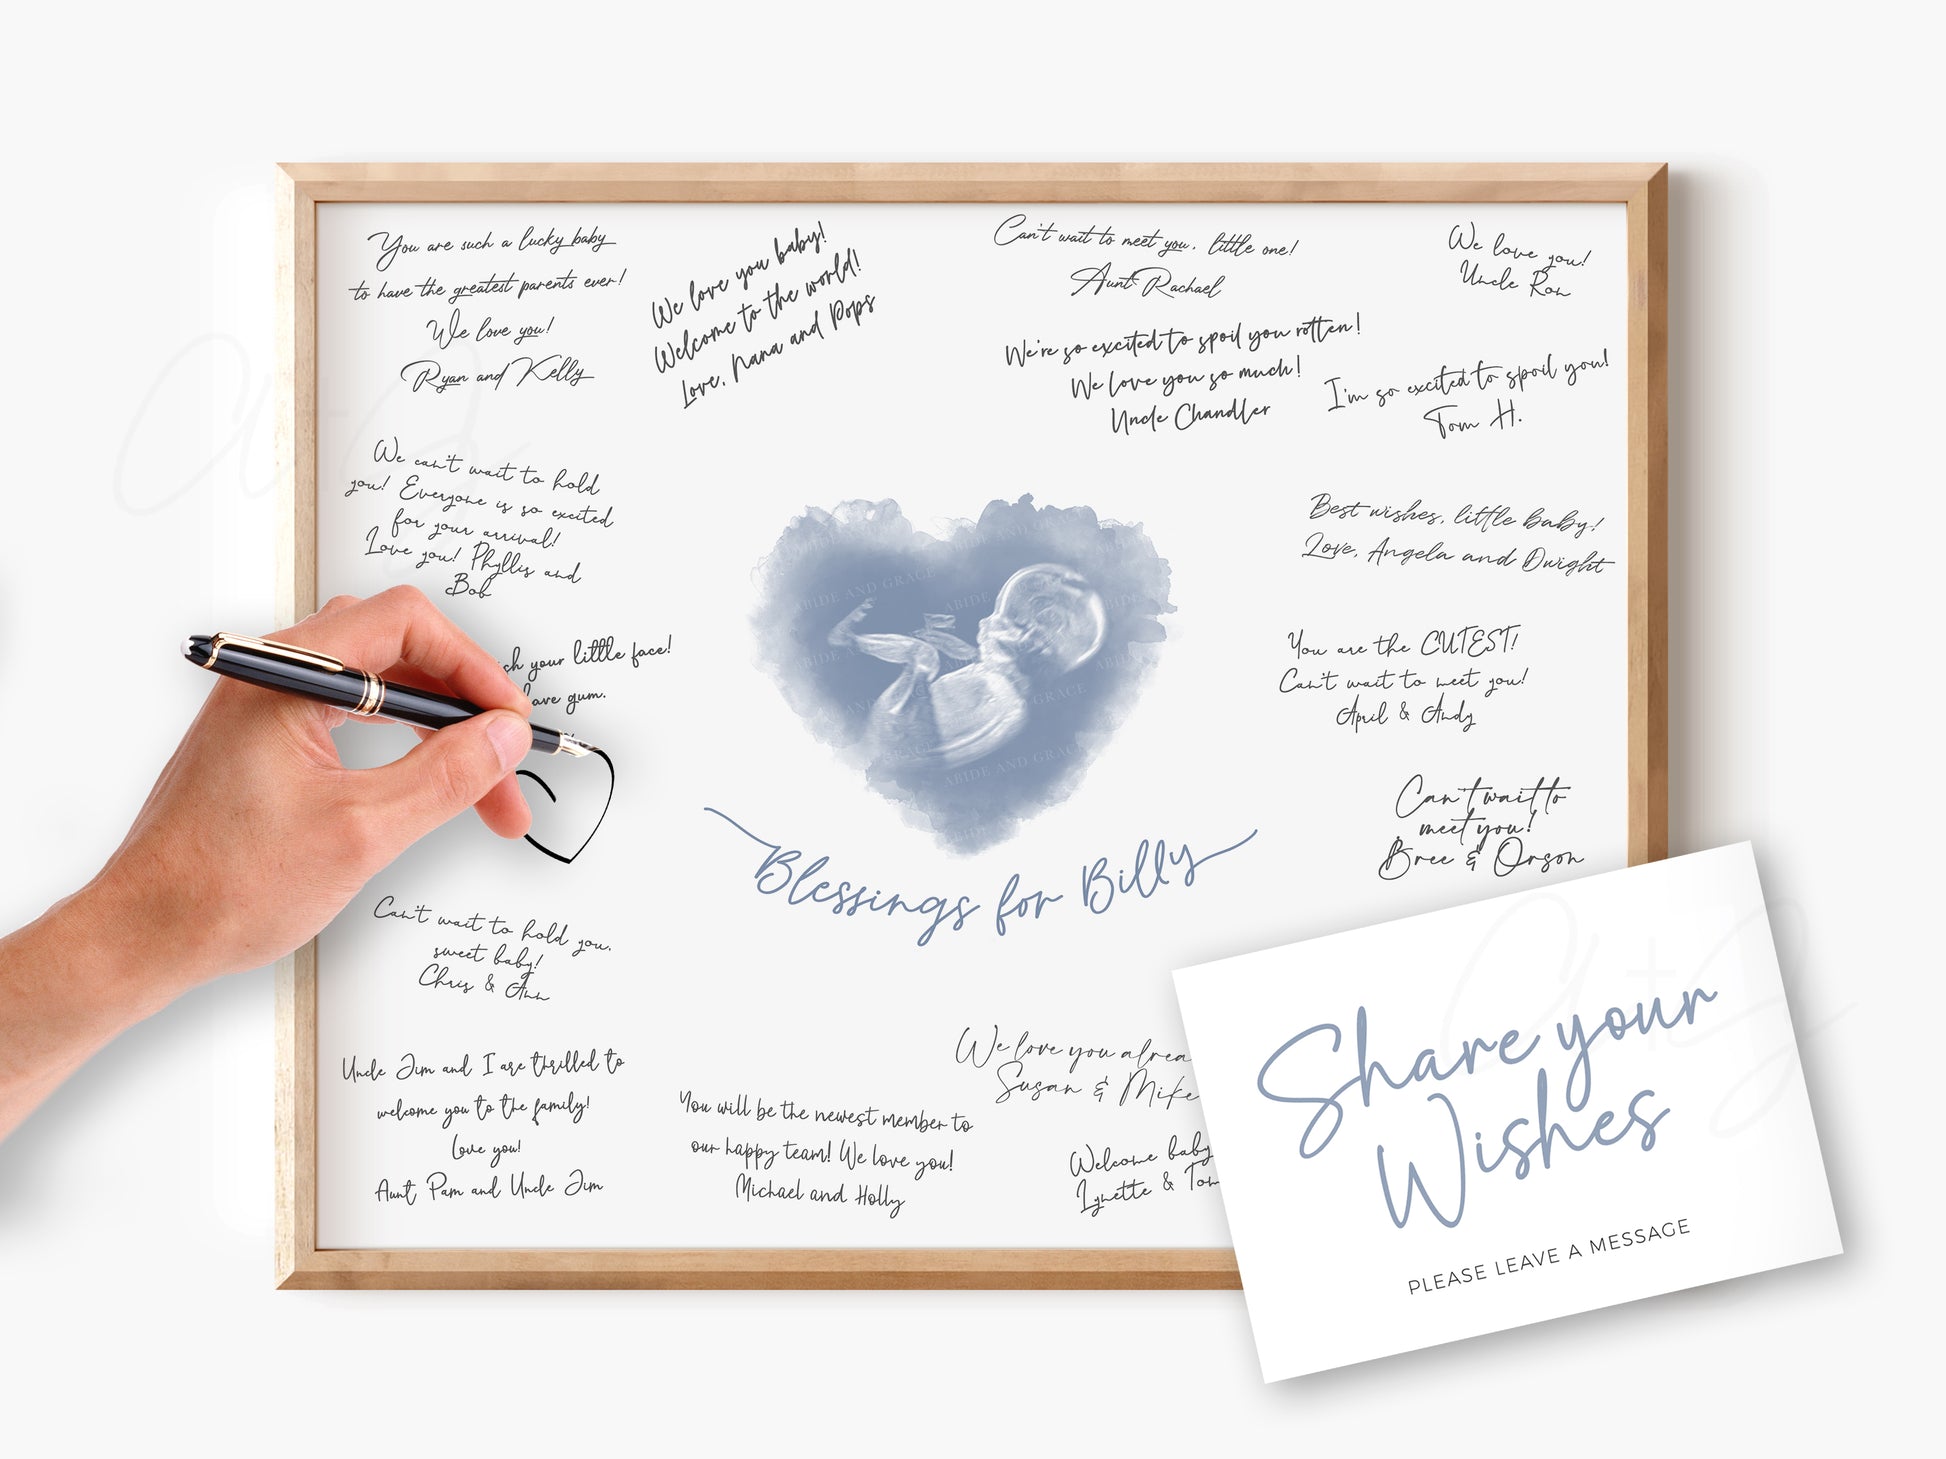 You are such a lucky baby
to have the greatest parents ever!
We love you!
Ryan and Kelly
We love you baby!
Welcome to the world!
Love, Nana and Pops
Can't wait to meet you, little one!
Aunt Rachael
We love you!
Uncle Ron
We're so excited to spoil you rotten!
We love you so much!
Uncle Chandler
I'm so excited to spoil you!
Tom H.
We can't wait to hold
you! Everyone is so excited
for your arrival!
Love you! Phyllis and
Bob
Best wishes, little baby!
Love, Angela and Dwight
your little face!
gum.
You are the CUTEST!
Can't wait to meet you!
April & Andy
Can't wait to
meet you!
Bree & Orson
ABIDE AND GRACE
Blessings for Billy
Can't wait to hold you,
sweet baby!
Chris & Ann
Uncle Jim and I are thrilled to
welcome you to the family!
Love you!
Aunt Pam and Uncle Jim
You will be the newest member to
our happy team! We love you!
Michael and Holly
We love you
Susan & Mike
Welcome baby
Lynette & Tom
Share your
Wishes
PLEASE LEAVE A MESSAGE